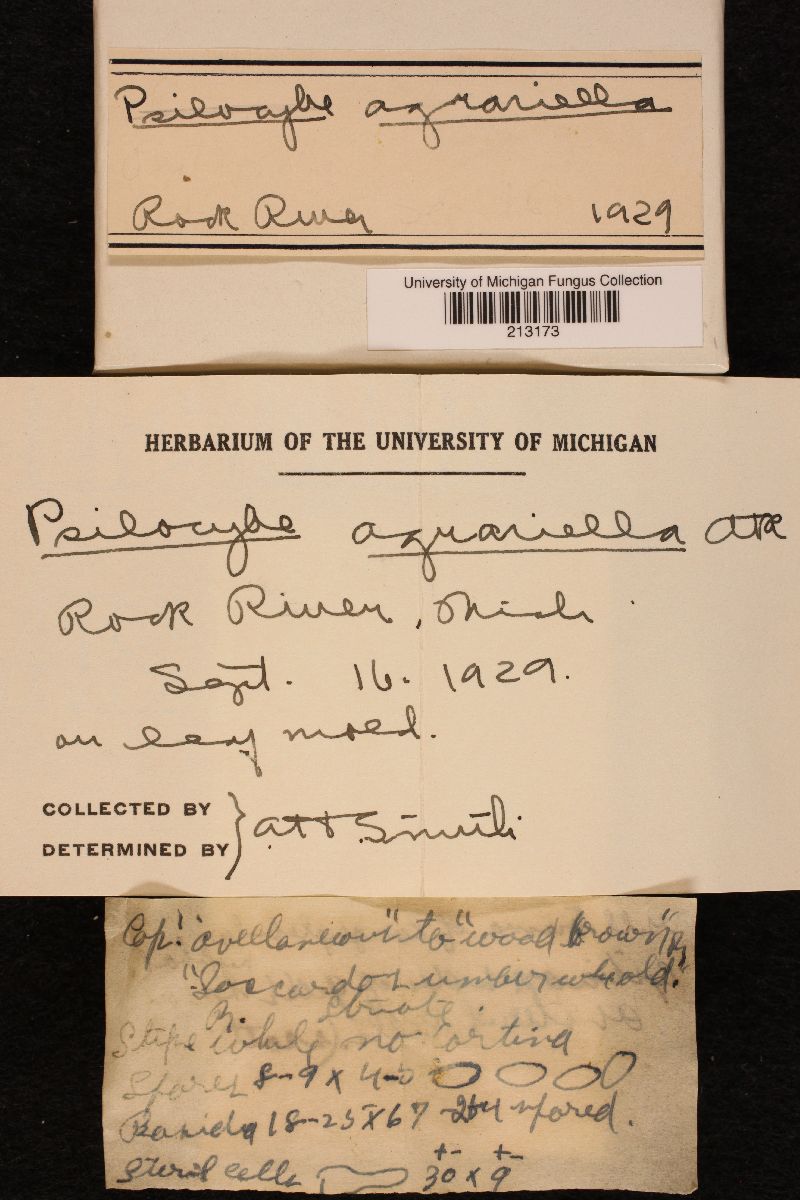 Psilocybe agrariella
Rock River 1929
University of Michigan Fungus Collection
213173
HERBARIUM OF THE UNIVERSITY OF MICHIGAN
Psilocybe agrariella Atk
Rock River, Mich
Sept. 16. 1929.
on leaf mold.
COLLECTED BY
DETERMINED BY } A. H. Smith
Cap "avellaneous" to "wood brown" R,
"Saccardo's umber when old."
R. Striate.
Stipe white no Cortina
Spores 8-9 x 4-5
Basidia 18-25 x 6 7 2-4 spored.
Steril cells 30 x 9
+- +-